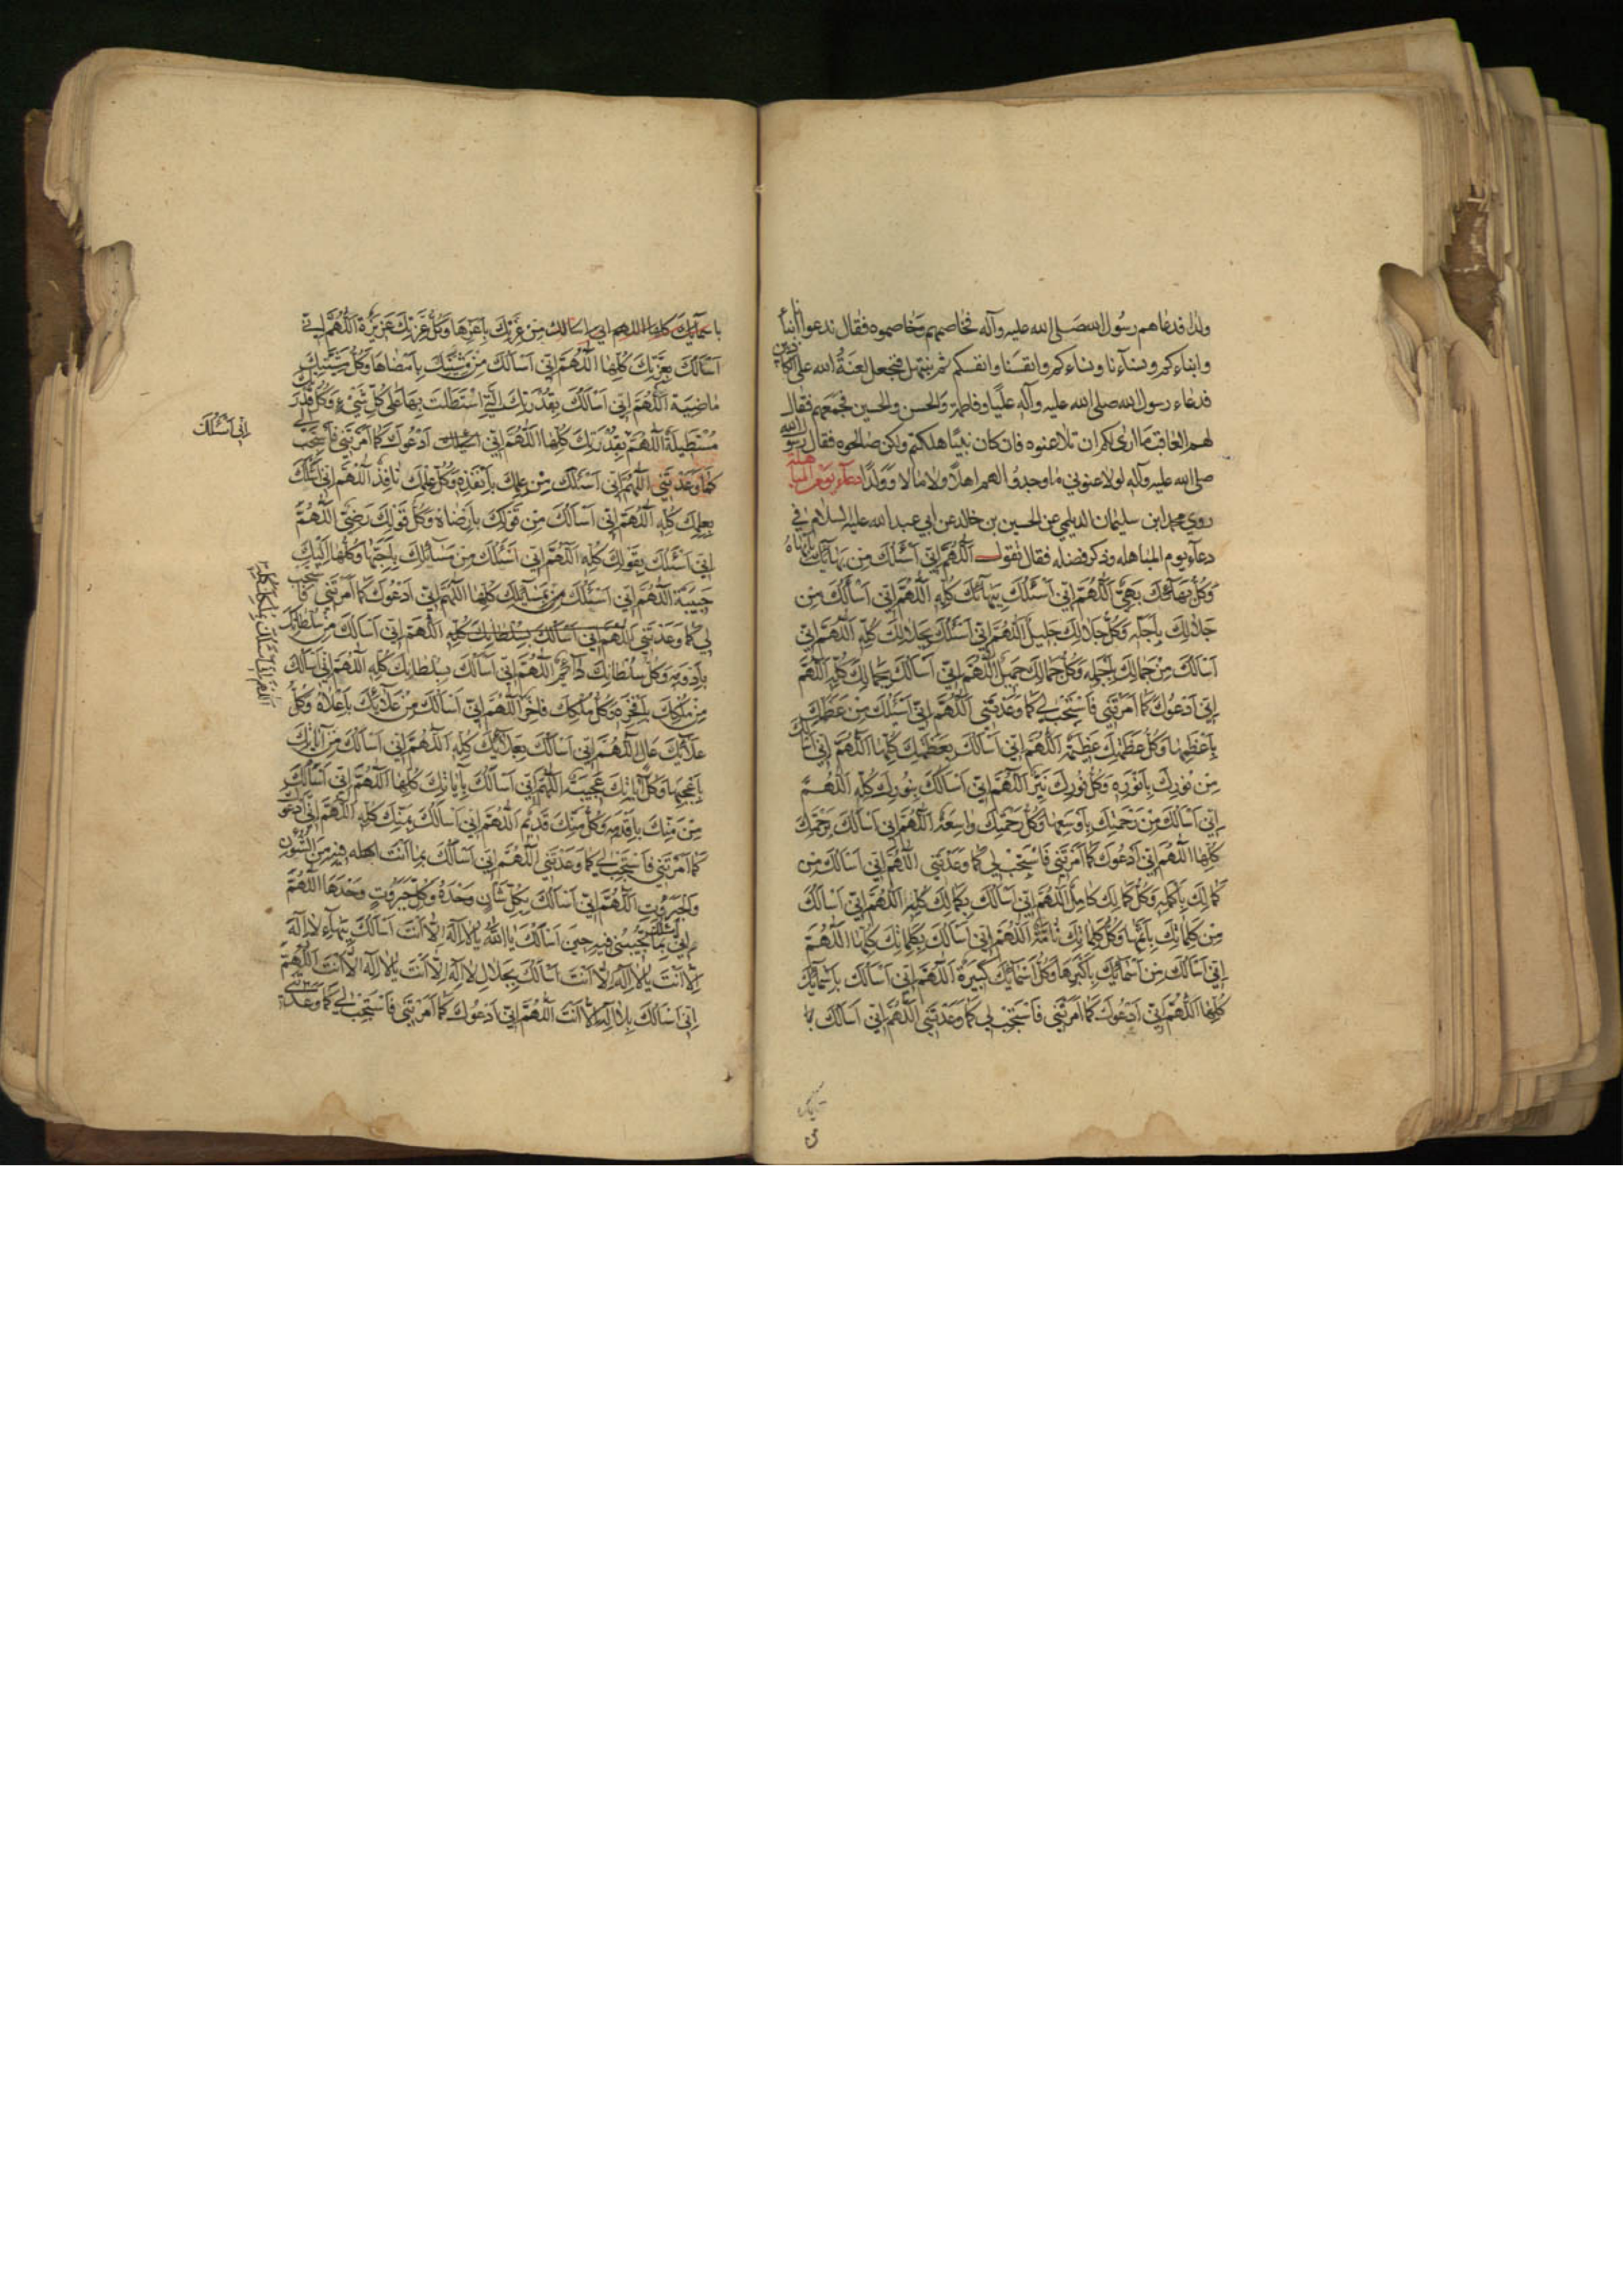 ولدا فدعاهم رسول الله صلى الله عليه وآله فخاصمهم وخاصموه فقال ندعوا أبناءنا
وابناءكم ونساءنا ونساءكم وانفسنا وانفسكم ثم نبتهل فنجعل لعنة الله على الكاذبين
فدعاء رسول الله صلى الله عليه وآله عليا وفاطمة والحسن والحسين فجمعهم فقال
لهم العاقب ما ارى لكم ان تلاعنوه فان كان نبيا هلكتم ولكن صالحوه فقال رسول الله
صلى الله عليه وآله لولاعنوني ما وجدوا لهم اهلا ولا مالا وولدا دعآء يوم المباهلة
روى محمد ابن سليمان الديلمي عن الحسين بن خالد عن ابي عبد الله عليه السلام في
دعآء يوم المباهله وذكر فضله فقال تقول اَللّٰهُمَّ اِنّي اَسْئَلُكَ مِن بَهآئِكَ بِاَبْهاهُ
وَكُلُّ بَهآئِكَ بَهِيٌّ اَللّٰهُمَّ اِنّي اَسْئَلُكَ بِبَهآئِكَ كُلِّهِ اَللّٰهُمَّ اِنّي اَسْاَلُكَ مِن
جَلالِكَ بِاَجَلِّهِ وَكُلُّ جَلالِكَ جَليلٌ اَللّٰهُمَّ اِنّي اَسْئَلُكَ بِجَلالِكَ كُلِّهِ اَللّٰهُمَّ اِنّي
اَسْاَلُكَ مِنْ جَمالِكَ بِاَجْمَلِهِ وَكُلُّ جَمالِكَ جَميلٌ اَللّٰهُمَّ اِنّي اَسْاَلُكَ بِجَمالِكَ كُلِّهِ اَللّٰهُمَّ
اِنّي اَدْعُوكَ كَمٰا اَمَرْتَني فَاسْتَجِبْ لي كَمٰا وَعَدْتَني اَللّٰهُمَّ اِنّي اَسْئَلُكَ مِنْ عَظَمَتِكَ
بِاَعْظَمِهٰا وَكُلُّ عَظَمَتِكَ عَظيمَةٌ اَللّٰهُمَّ اِنّي اَسْاَلُكَ بِعَظَمَتِكَ كُلِّهٰا اَللّٰهُمَّ اِنّي اَسْاَلُكَ
مِنْ نُورِكَ بِاَنْوَرِهِ وَكُلُّ نُورِكَ نَيِّرٌ اَللّٰهُمَّ اِنّي اَسْاَلُكَ بِنُورِكَ كُلِّهِ اَللّٰهُمَّ
اِنّي اَسْاَلُكَ مِنْ رَحْمَتِكَ بِاَوْسَعِهٰا وَكُلُّ رَحْمَتِكَ وٰاسِعَةٌ اَللّٰهُمَّ اِنّي اَسْاَلُكَ بِرَحْمَتِكَ
كُلِّهٰا اَللّٰهُمَّ اِنّي اَدْعُوكَ كَمٰا اَمَرْتَني فَاسْتَجِبْ لي كَمٰا وَعَدْتَني اَللّٰهُمَّ اِنّي اَسْاَلُكَ مِن
كَمٰالِكَ بِاَكْمَلِهِ وَكُلُّ كَمٰالِكَ كٰامِلٌ اَللّٰهُمَّ اِنّي اَسْاَلُكَ بِكَمٰالِكَ كُلِّهِ اَللّٰهُمَّ اِنّي اَسْاَلُكَ
مِنْ كَلِمٰاتِكَ بِاَتَمِّهٰا وَكُلُّ كَلِمٰاتِكَ تٰامَّةٌ اَللّٰهُمَّ اِنّي اَسْاَلُكَ بِكَلِمٰاتِكَ كُلِّهٰا اَللّٰهُمَّ
اِنّي اَسْاَلُكَ مِنْ اَسْمٰآئِكَ بِاَكْبَرِهٰا وَكُلُّ اَسْمٰآئِكَ كَبيرَةٌ اَللّٰهُمَّ اِنّي اَسْاَلُكَ بِاَسْمٰآئِكَ
كُلِّهٰا اَللّٰهُمَّ اِنّي اَدْعُوكَ كَمٰا اَمَرْتَني فَاسْتَجِبْ لي كَمٰا وَعَدْتَني اَللّٰهُمَّ اِنّي اَسْاَلُكَ
باسمآئك كلها اللهم اني اسالك مِنْ عِزَّتِكَ بِاَعَزِّهٰا وَكُلُّ عِزَّتِكَ عَزيزَةٌ اَللّٰهُمَّ اِنّي
اَسْاَلُكَ بِعِزَّتِكَ كُلِّهٰا اَللّٰهُمَّ اِنّي اَسْاَلُكَ مِنْ مَشِيَّتِكَ بِاَمْضٰاهٰا وَكُلُّ مَشِيَّتِكَ
مٰاضِيَةٌ اَللّٰهُمَّ اِنّي اَسْاَلُكَ بِقُدْرَتِكَ الَّتي اسْتَطَلْتَ بِهٰا عَلى كُلِّ شَيْءٍ وَكُلُّ قُدْرَتِكَ
مُسْتَطيلَةٌ اَللّٰهُمَّ بِقُدْرَتِكَ كُلِّهٰا اَللّٰهُمَّ اِنّي اَدْعُوكَ كَمٰا اَمَرْتَني فَاسْتَجِبْ لي
اِنّي اَسْئَلُكَ
كَمٰا وَعَدْتَني اَللّٰهُمَّ اِنّي اَسْئَلُكَ مِنْ عِلْمِكَ بِاَنْفَذِهِ وَكُلُّ عِلْمِكَ نٰافِذٌ اَللّٰهُمَّ اِنّي اَسْئَلُكَ
بِعِلْمِكَ كُلِّهِ اَللّٰهُمَّ اِنّي اَسْاَلُكَ مِنْ قَوْلِكَ بِاَرْضٰاهُ وَكُلُّ قَوْلِكَ رَضِيٌّ اَللّٰهُمَّ
اِنّي اَسْئَلُكَ بِقَوْلِكَ كُلِّهِ اَللّٰهُمَّ اِنّي اَسْئَلُكَ مِنْ مَسٰآئِلِكَ بِاَحَبِّهٰا وَكُلُّهٰا اِلَيْكَ
حَبيبَةٌ اَللّٰهُمَّ اِنّي اَسْئَلُكَ بِمَسٰآئِلِكَ كُلِّهٰا اَللّٰهُمَّ اِنّي اَدْعُوكَ كَمٰا اَمَرْتَني فَاسْتَجِبْ
لي كَمٰا وَعَدْتَني اَللّٰهُمَّ اِنّي اَسْاَلُكَ بِسُلْطٰانِكَ كُلِّهِ اَللّٰهُمَّ اِنّي اَسْاَلُكَ مِنْ سُلْطٰانِكَ
بِاَدْوَمِهِ وَكُلُّ سُلْطٰانِكَ دٰآئِمٌ اَللّٰهُمَّ اِنّي اَسْاَلُكَ بِسُلْطٰانِكَ كُلِّهِ اَللّٰهُمَّ اِنّي اَسْاَلُكَ
مِنْ مُلْكِكَ بِاَفْخَرِهِ وَكُلُّ مُلْكِكَ فٰاخِرٌ اَللّٰهُمَّ اِنّي اَسْاَلُكَ مِنْ عَلآئِكَ بِاَعْلاهُ وَكُلُّ
اللهم اني اسالك بملكك كله
عَلآئِكَ عٰالٍ اَللّٰهُمَّ اِنّي اَسْاَلُكَ بِعَلآئِكَ كُلِّهِ اَللّٰهُمَّ اِنّي اَسْاَلُكَ مِنْ آيٰاتِكَ
بِاَعْجَبِهٰا وَكُلُّ آيٰاتِكَ عَجيبَةٌ اَللّٰهُمَّ اِنّي اَسْاَلُكَ بِآيٰاتِكَ كُلِّهٰا اَللّٰهُمَّ اِنّي اَسْاَلُكَ
مِنْ مَنِّكَ بِاَقْدَمِهِ وَكُلُّ مَنِّكَ قَديمٌ اَللّٰهُمَّ اِنّي اَسْاَلُكَ بِمَنِّكَ كُلِّهِ اَللّٰهُمَّ اِنّي اَدْعُوكَ
كَمٰا اَمَرْتَني فَاسْتَجِبْ لي كَمٰا وَعَدْتَني اَللّٰهُمَّ اِنّي اَسْاَلُكَ بِمٰا اَنْتَ فيهِ مِنَ الشُّؤُنِ
وَالْجَبَرُوتِ اَللّٰهُمَّ اِنّي اَسْاَلُكَ بِكُلِّ شَأنٍ وَحْدَهُ وَكُلِّ جَبَرُوتٍ وَحْدَهٰا اَللّٰهُمَّ
اِنّي اَسْئَلُكَ بِمٰا تُجيبُني فيهِ حينَ اَسْاَلُكَ يٰا اَللّٰهُ يٰا لا اِلٰهَ اِلّا اَنْتَ اَسْاَلُكَ بِبَهٰآءِ لا اِلٰهَ
اِلّا اَنْتَ يٰا لا اِلٰهَ اِلّا اَنْتَ اَسْاَلُكَ بِجَلالِ لا اِلٰهَ اِلّا اَنْتَ يٰا لا اِلٰهَ اِلّا اَنْتَ اَللّٰهُمَّ
اِنّي اَسْاَلُكَ بِلا اِلٰهَ اِلّا اَنْتَ اَللّٰهُمَّ اِنّي اَدْعُوكَ كَمٰا اَمَرْتَني فَاسْتَجِبْ لي كَمٰا وَعَدْتَني